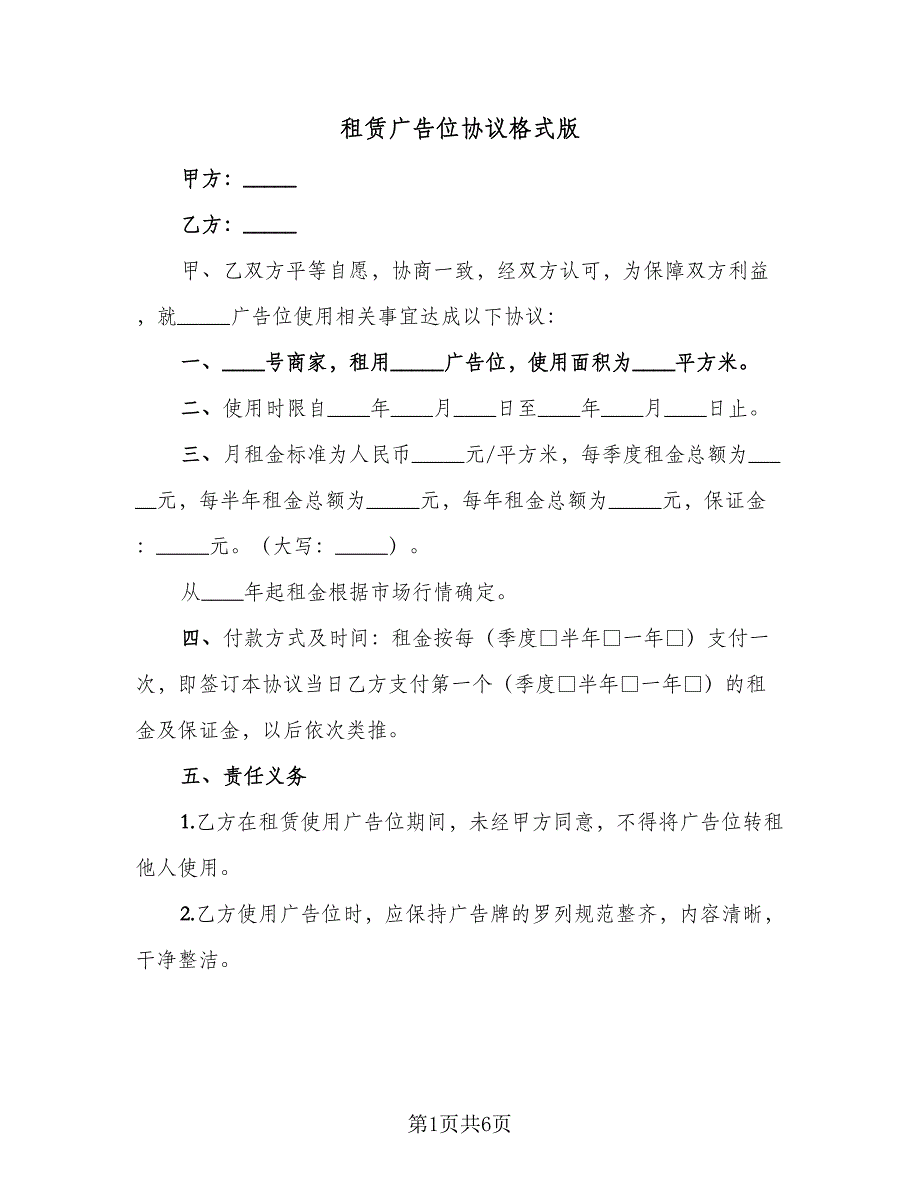 租赁广告位协议格式版
甲方：_____
乙方：_____
甲、乙双方平等自愿，协商一致，经双方认可，为保障双方利益
，就_____广告位使用相关事宜达成以下协议：
一、____号商家，租用_____广告位，使用面积为____平方米。
二、使用时限自____年____月____日至____年____月____日止。
三、月租金标准为人民币_____元/平方米，每季度租金总额为___
__元，每半年租金总额为_____元，每年租金总额为_____元，保证金
：_____元。（大写：_____）。
从____年起租金根据市场行情确定。
四、付款方式及时间：租金按每（季度□半年□一年□）支付一
次，即签订本协议当日乙方支付第一个（季度□半年□一年□）的租
金及保证金，以后依次类推。
五、责任义务
1.乙方在租赁使用广告位期间，未经甲方同意，不得将广告位转租
他人使用。
2.乙方使用广告位时，应保持广告牌的罗列规范整齐，内容清晰，
干净整洁。
第1页共6页